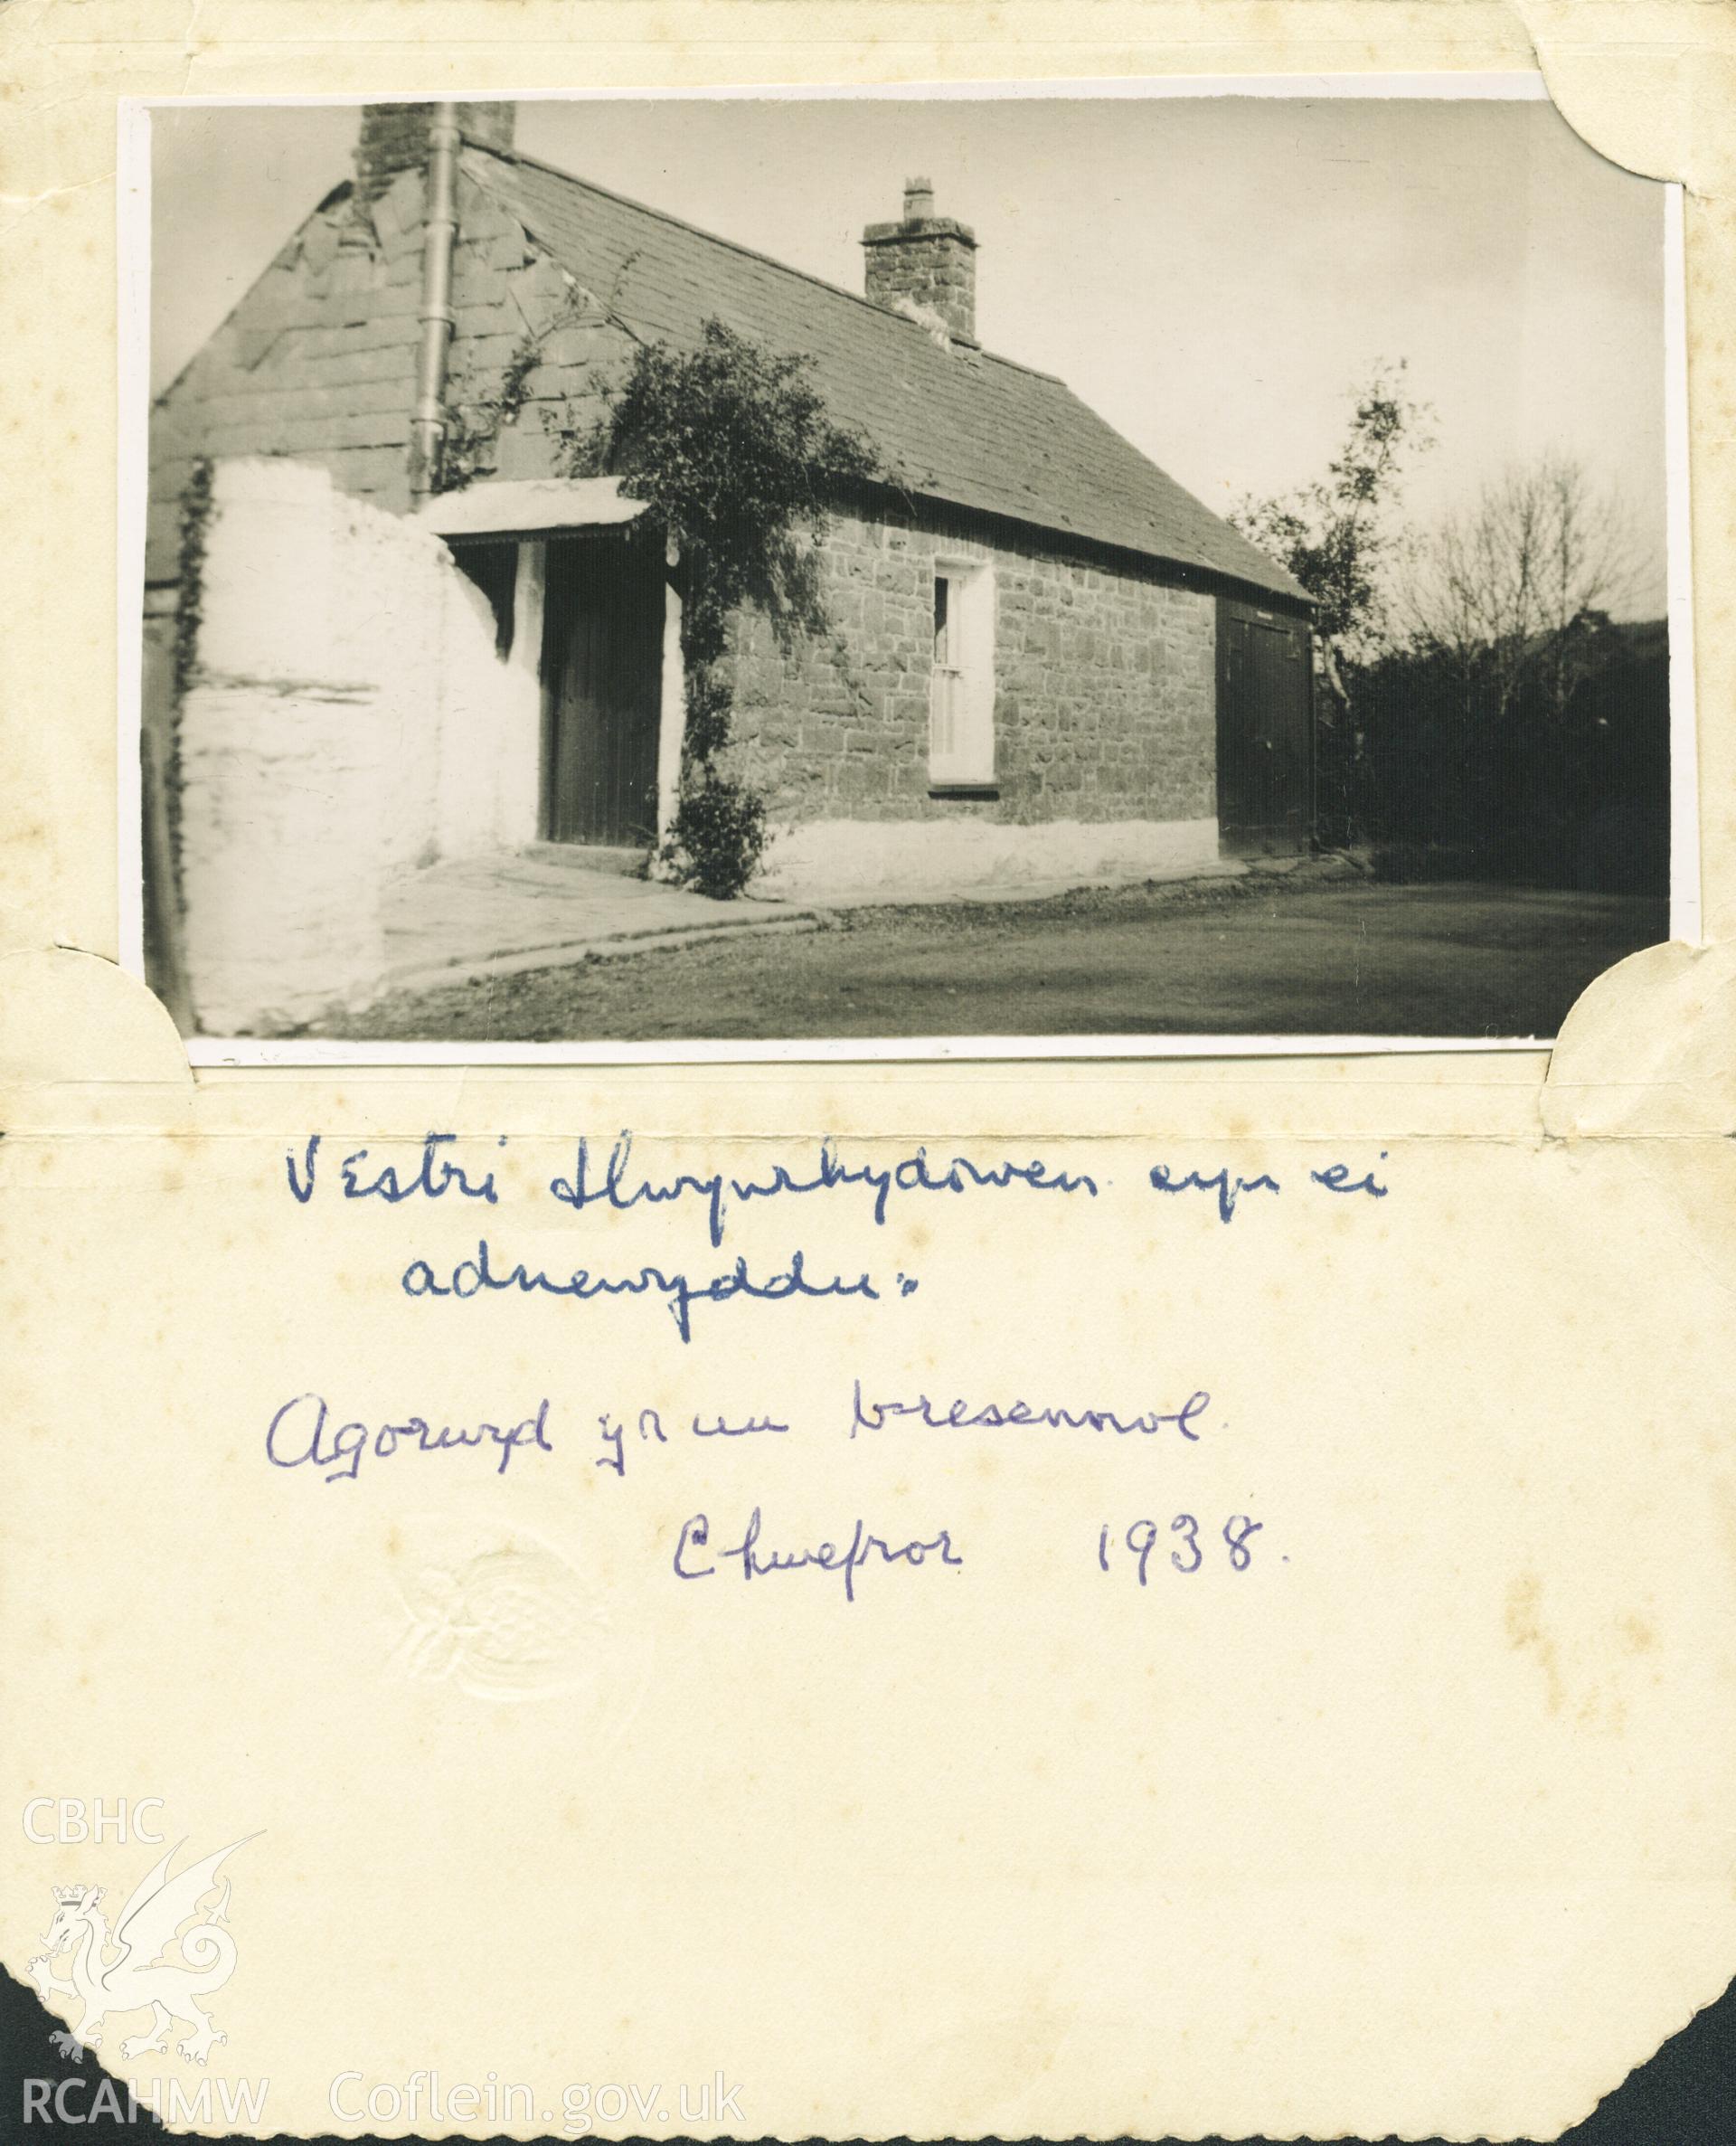 Vestri Llwynrhydowen cyn ei
adnewyddu.
Agorwyd yr un bresennol.
Chwefror 1938.
CBHC
RCAHMW Coflein.gov.uk